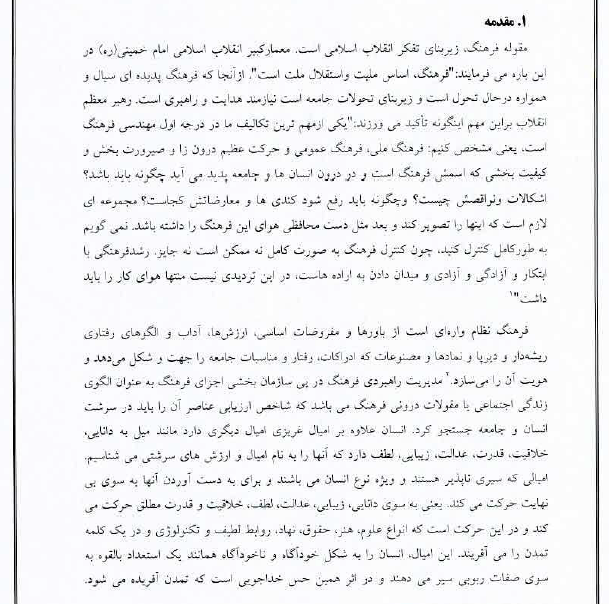 ۱. مقدمه
مقوله فرهنگ، زیربنای تفکر انقلاب اسلامی است. معمارکبیر انقلاب اسلامی امام خمینی(ره) در
این باره می فرمایند:"فرهنگ، اساس ملیت واستقلال ملت است". ازآنجا که فرهنگ پدیده ای سیال و
همواره درحال تحول است و زیربنای تحولات جامعه است نیازمند هدایت و راهبری است. رهبر معظم
انقلاب براین مهم اینگونه تأکید می ورزند:"یکی ازمهم ترین تکالیف ما در درجه اول مهندسی فرهنگ
است، یعنی مشخص کنیم: فرهنگ ملی، فرهنگ عمومی و حرکت عظیم درون زا و صیرورت بخش و
کیفیت بخشی که اسمش فرهنگ است و در درون انسان ها و جامعه پدید می آید چگونه باید باشد؟
اشکالات ونواقصش چیست؟ وچگونه باید رفع شود کندی ها و معارضاتش کجاست؟ مجموعه ای
لازم است که اینها را تصویر کند و بعد مثل دست محافظی هوای این فرهنگ را داشته باشد. نمی گویم
به طورکامل کنترل کنید، چون کنترل فرهنگ به صورت کامل نه ممکن است نه جایز. رشدفرهنگی با
ابتکار و آزادگی و آزادی و میدان دادن به اراده هاست، در این تردیدی نیست منتها هوای کار را باید
داشت"۱
فرهنگ نظام واره‌ای است از باورها و مفروضات اساسی، ارزش‌ها، آداب و الگوهای رفتاری
ریشه‌دار و دیرپا و نمادها و مصنوعات که ادراکات، رفتار و مناسبات جامعه را جهت و شکل می‌دهد و
هویت آن را می‌سازد.۲ مدیریت راهبردی فرهنگ در پی سازمان بخشی اجزای فرهنگ به عنوان الگوی
زندگی اجتماعی یا مقولات درونی فرهنگ می باشد که شاخص ارزیابی عناصر آن را باید در سرشت
انسان و جامعه جستجو کرد. انسان علاوه بر امیال غریزی امیال دیگری دارد مانند میل به دانایی،
خلاقیت، قدرت، عدالت، زیبایی، لطف دارد که آنها را به نام امیال و ارزش های سرشتی می شناسیم.
امیالی که سیری ناپذیر هستند و ویژه نوع انسان می باشند و برای به دست آوردن آنها به سوی بی
نهایت حرکت می کند. یعنی به سوی دانایی، زیبایی، عدالت، لطف، خلاقیت و قدرت مطلق حرکت می
کند و در این حرکت است که انواع علوم، هنر، حقوق، نهاد، روابط لطیف و تکنولوژی و در یک کلمه
تمدن را می آفریند. این امیال، انسان را به شکل خودآگاه و ناخودآگاه همانند یک استعداد بالقوه به
سوی صفات ربوبی سیر می دهند و در اثر همین حس خداجویی است که تمدن آفریده می شود.